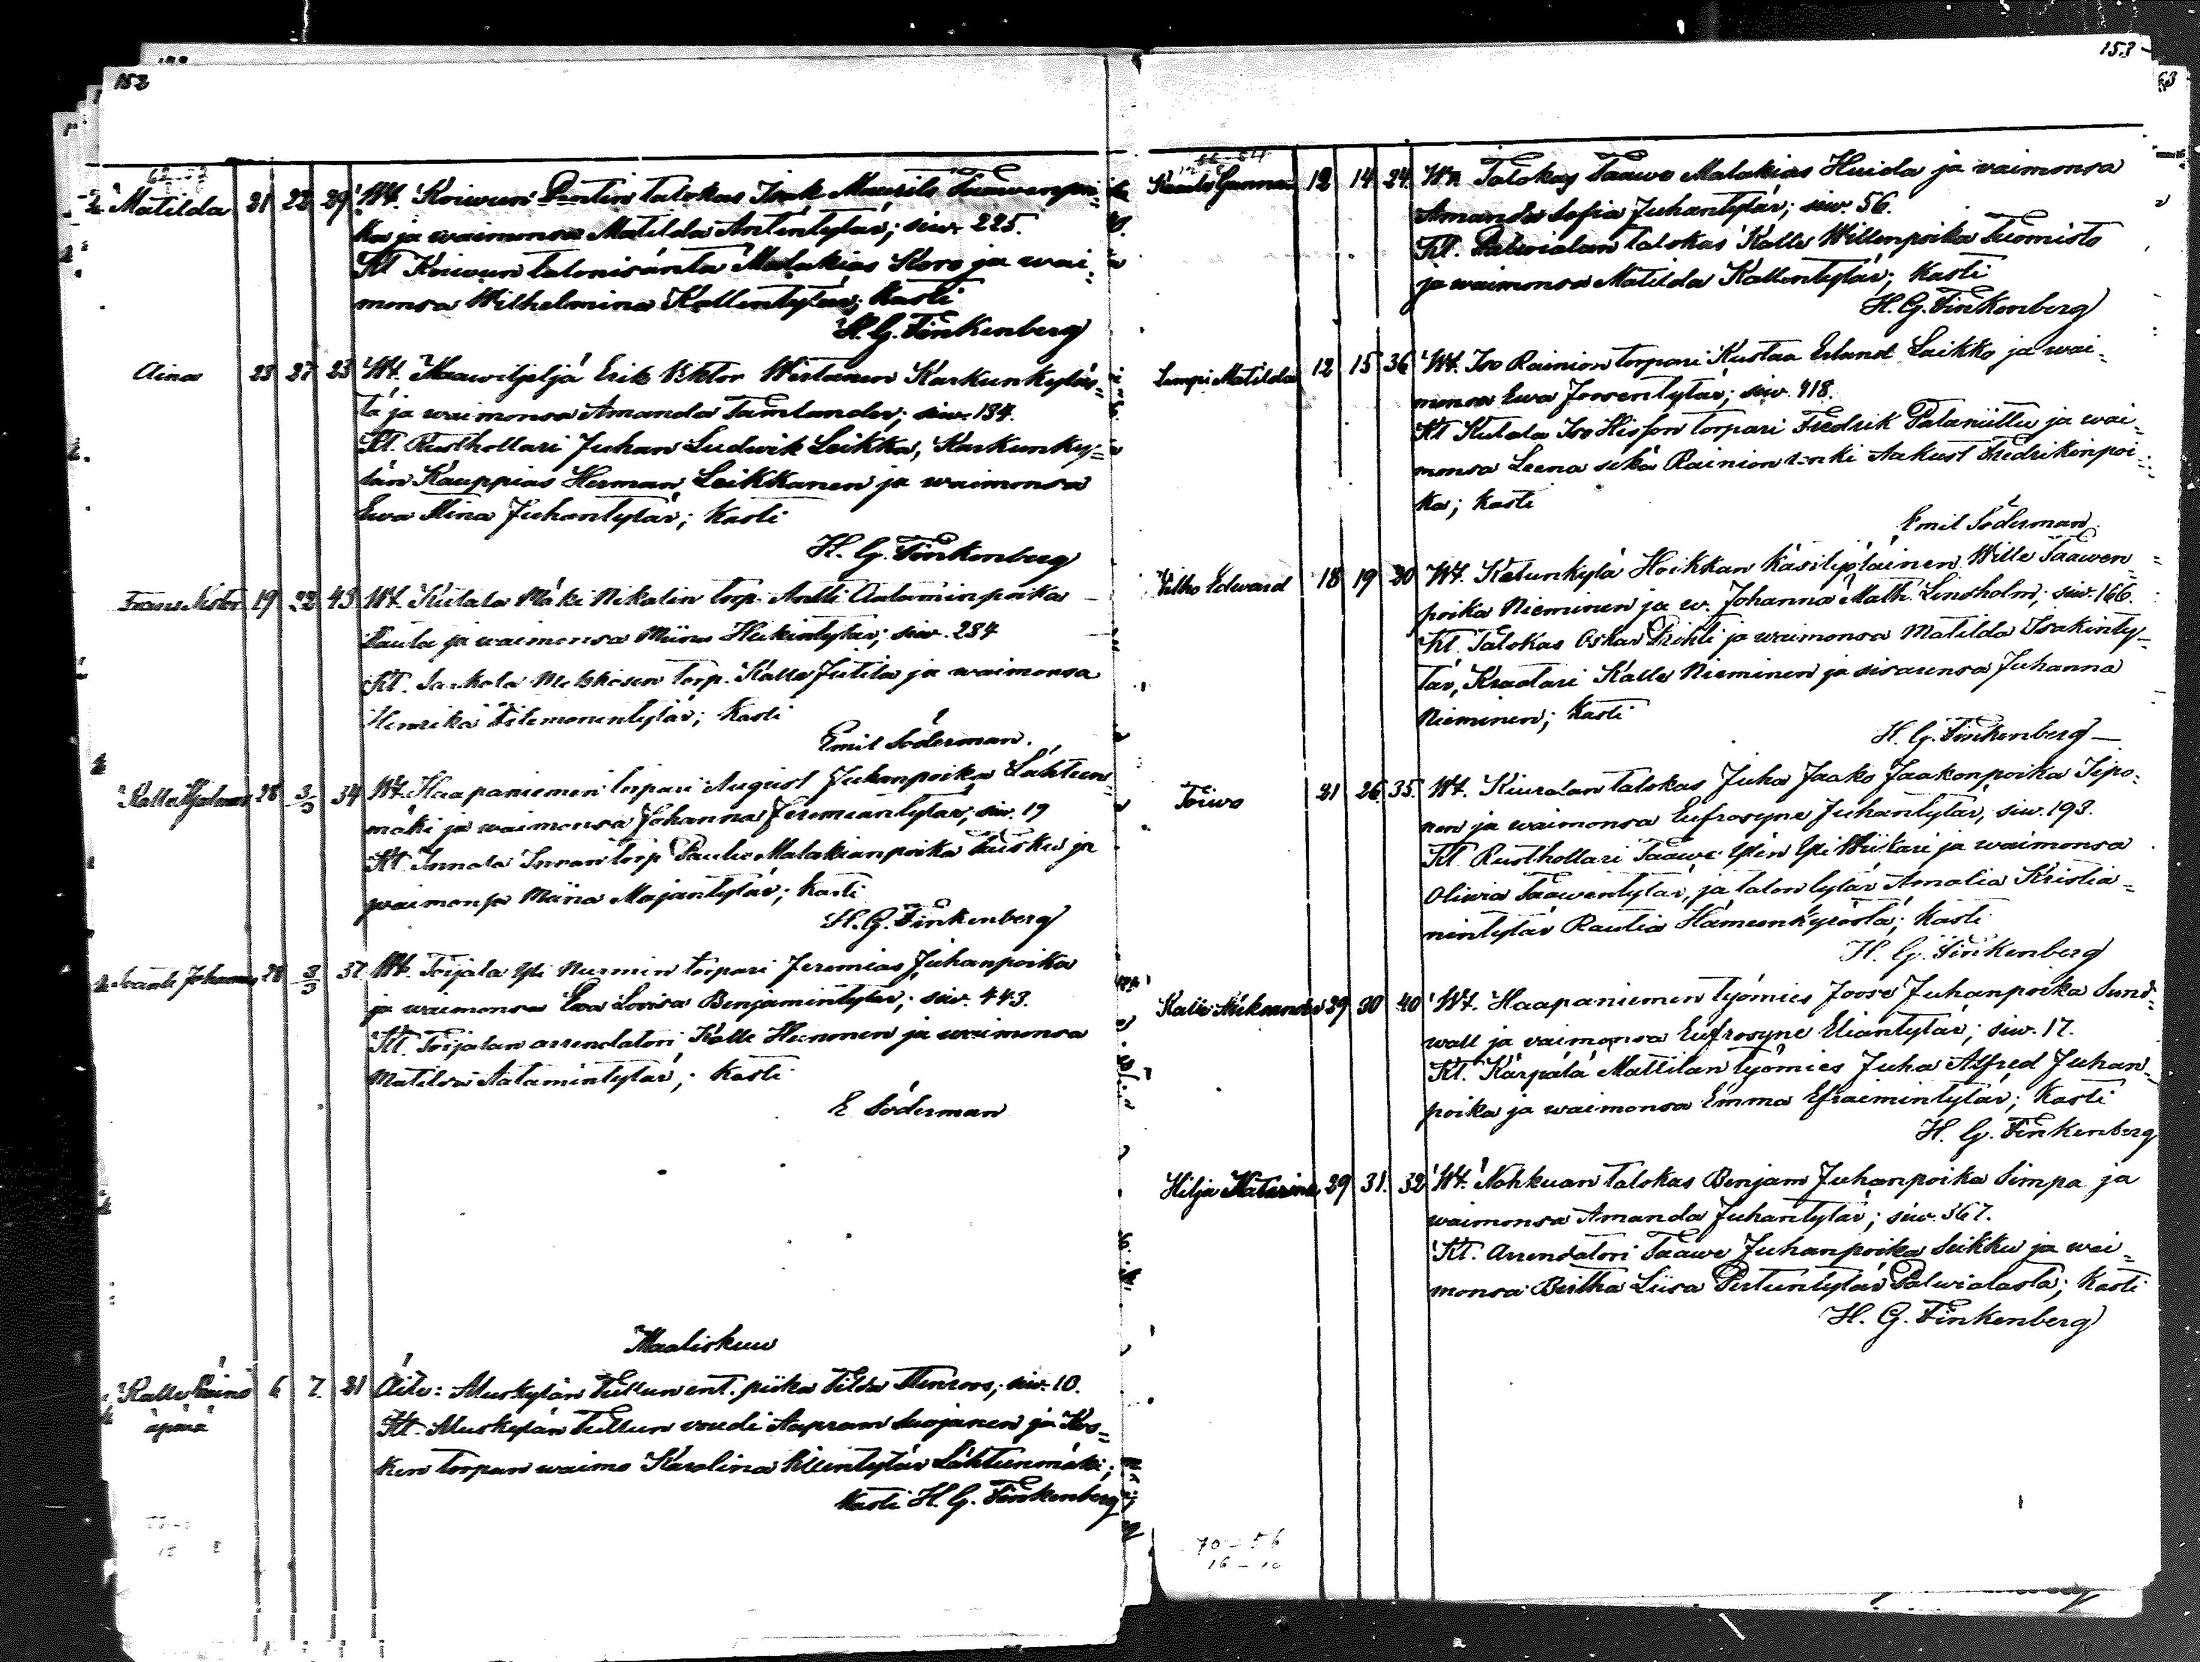 152
Matilda 21 22 29 Wt. Koiwun Pentin talokas Isak Maurits Taawenpoi-
ka ja waimonsa Matilda Antintytär; siw. 225.
Kt Koiwun talonisäntä Malakias Koro ja wai-
monsa Wilhelmina Kallentytär; Kasti
H. G. Finkenberg
Aina 23 27 23 Wt. Maawiljeljä Erik Viktor Westanen Karkunkyläs-
tä ja waimonsa Amanda Tamlander; siw. 134.
Kt. Rusthollari Juhan Ludwik Leikka, Karkunky-
län Kauppias Herman Leikkanen ja waimonsa
Ewa Stina Juhantytär; Kasti
H. G. Finkenberg
Frans Nestor 19 22 43 Wt. Kutala Mäki Nikalin torp. Antti Aataminpoika
Paulu ja waimonsa Miina Heikintytär; siw. 284
Kt. Sarkola torp. Kalle Jutila ja waimonsa
Henrika Filemonintytär; Kasti
Emil Söderman.
Kalle Hjalmar 28 3/3 34 Wt. Haapaniemen torpari August Juhanpoika Lähteen-
mäki ja waimonsa Johanna Jeremiantytär, siw. 19
Kt Innala Innan torp Paulu Malakianpoika Tuisku ja
waimonsa Miina Majantytär; Kasti
H. G. Finkenberg
Santi Johannes 28 3/3 37 Wt. Toijala Yli Nurmin torpari Jeremias Juhanpoika
ja waimonsa Ewa Lovisa Benjamintytär; siw. 443.
Kt. Toijalan arrendatori Kalle Heinonen ja waimonsa
Matilda Aatamintytär; Kasti
E Söderman
Maaliskuu
Kalle Räinö 6 7. 21 Äiti: Muskylän Tullun ent. piika Tilda Stenroos; siw. 10.
äpärä Kt. Muskylän Tullun voudi Aapram Suojanen ja Kos-
ken torpan waimo Karolina Lähteenmäki;
Kasti H. G. Finkenberg
153
Kaarlo Gunnar 12 14 24. Wn Talokas Taawe Malakias Huida ja waimonsa
Amanda Sofia Juhantytär; siw. 56.
Kt. Palwialan talokas Kalle Willenpoika Tuomisto
ja waimonsa Matilda Kallentytär; Kasti
H. G. Finkenberg
Lempi Matilda 12 15 36 Wt. Iso Rainion torpari Kustaa Erland Laikko ja wai-
monsa Ewa Joosentytär; siw. 418.
Kt Kutala Iso Hisson torpari Fredrik Palaniittu ja wai-
monsa Leena sekä Rainion renki Aakust Fredrikinpoi-
ka; Kasti
Emil Söderman
Vilho Edward 18 19 30 Wt. Ketunkylä Hoikkan käsityöläinen Wille Taawen-
poika Nieminen ja w. Johanna Math. Linsholm; siw. 166.
Kt. Talokas Oskar Prihti ja waimonsa Matilda Isakinty-
tär, Kraatari Kalle Nieminen ja sisarensa Juhanna
Nieminen; Kasti
H. G. Finkenberg
Toiwo 21 26. 35. Wt. Kiuralan talokas Juha Jaako Jaakonpoika Sipo-
nen ja waimonsa Eufrosyne Juhantytär, siw. 193.
Kt. Rusthollari Taawe Ylin Yli Wiikari ja waimonsa
Oliwia Taawentytär, ja talon tytär Amalia Kristia-
nintytär Rautia Hämeenkyröstä; Kasti
H. G. Finkenberg
Kalle Aleksander 29 30 40 Wt. Haapaniemen työmies Joose Juhanpoika Sund-
wall ja waimonsa Eufrosyne Eliantytär; siw. 17.
Kt. Kärpälä Mattilan työmies Juha Alfred Juhan-
poika ja waimonsa Emma Efraimintytär; Kasti
H. G. Finkenberg
Hilja Katarina 29 31. 32 Wt. Nohkuan talokas Benjam Juhanpoika Simpa ja
waimonsa Amanda Juhantytär; siw. 367.
Kt. Arrendatori Taawe Juhanpoika Seikku ja wai-
monsa Bertha Liisa Pertuntytär Palwialasta; Kasti
H. G. Finkenberg
70 - 56
16 - 10